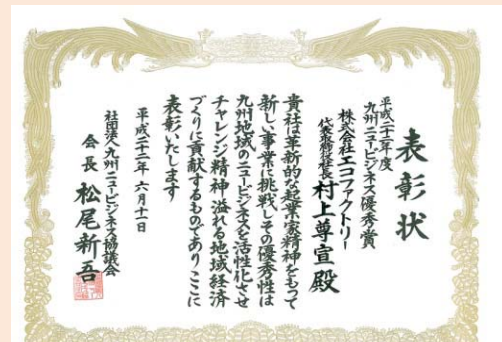 表彰状
平成二十二年度
九州ニュービジネス優秀賞
株式会社エコファクトリー
代表取締役社長 村上尊宣殿
貴社は革新的な起業家精神をもって
新しい事業に挑戦しその優秀性は
九州地域のニュービジネスを活性化させ
チャレンジ精神溢れる地域経済
づくりに貢献するものでありここに
表彰いたします
平成二十二年六月十一日
社団法人九州ニュービジネス協議会
会長 松尾新吾